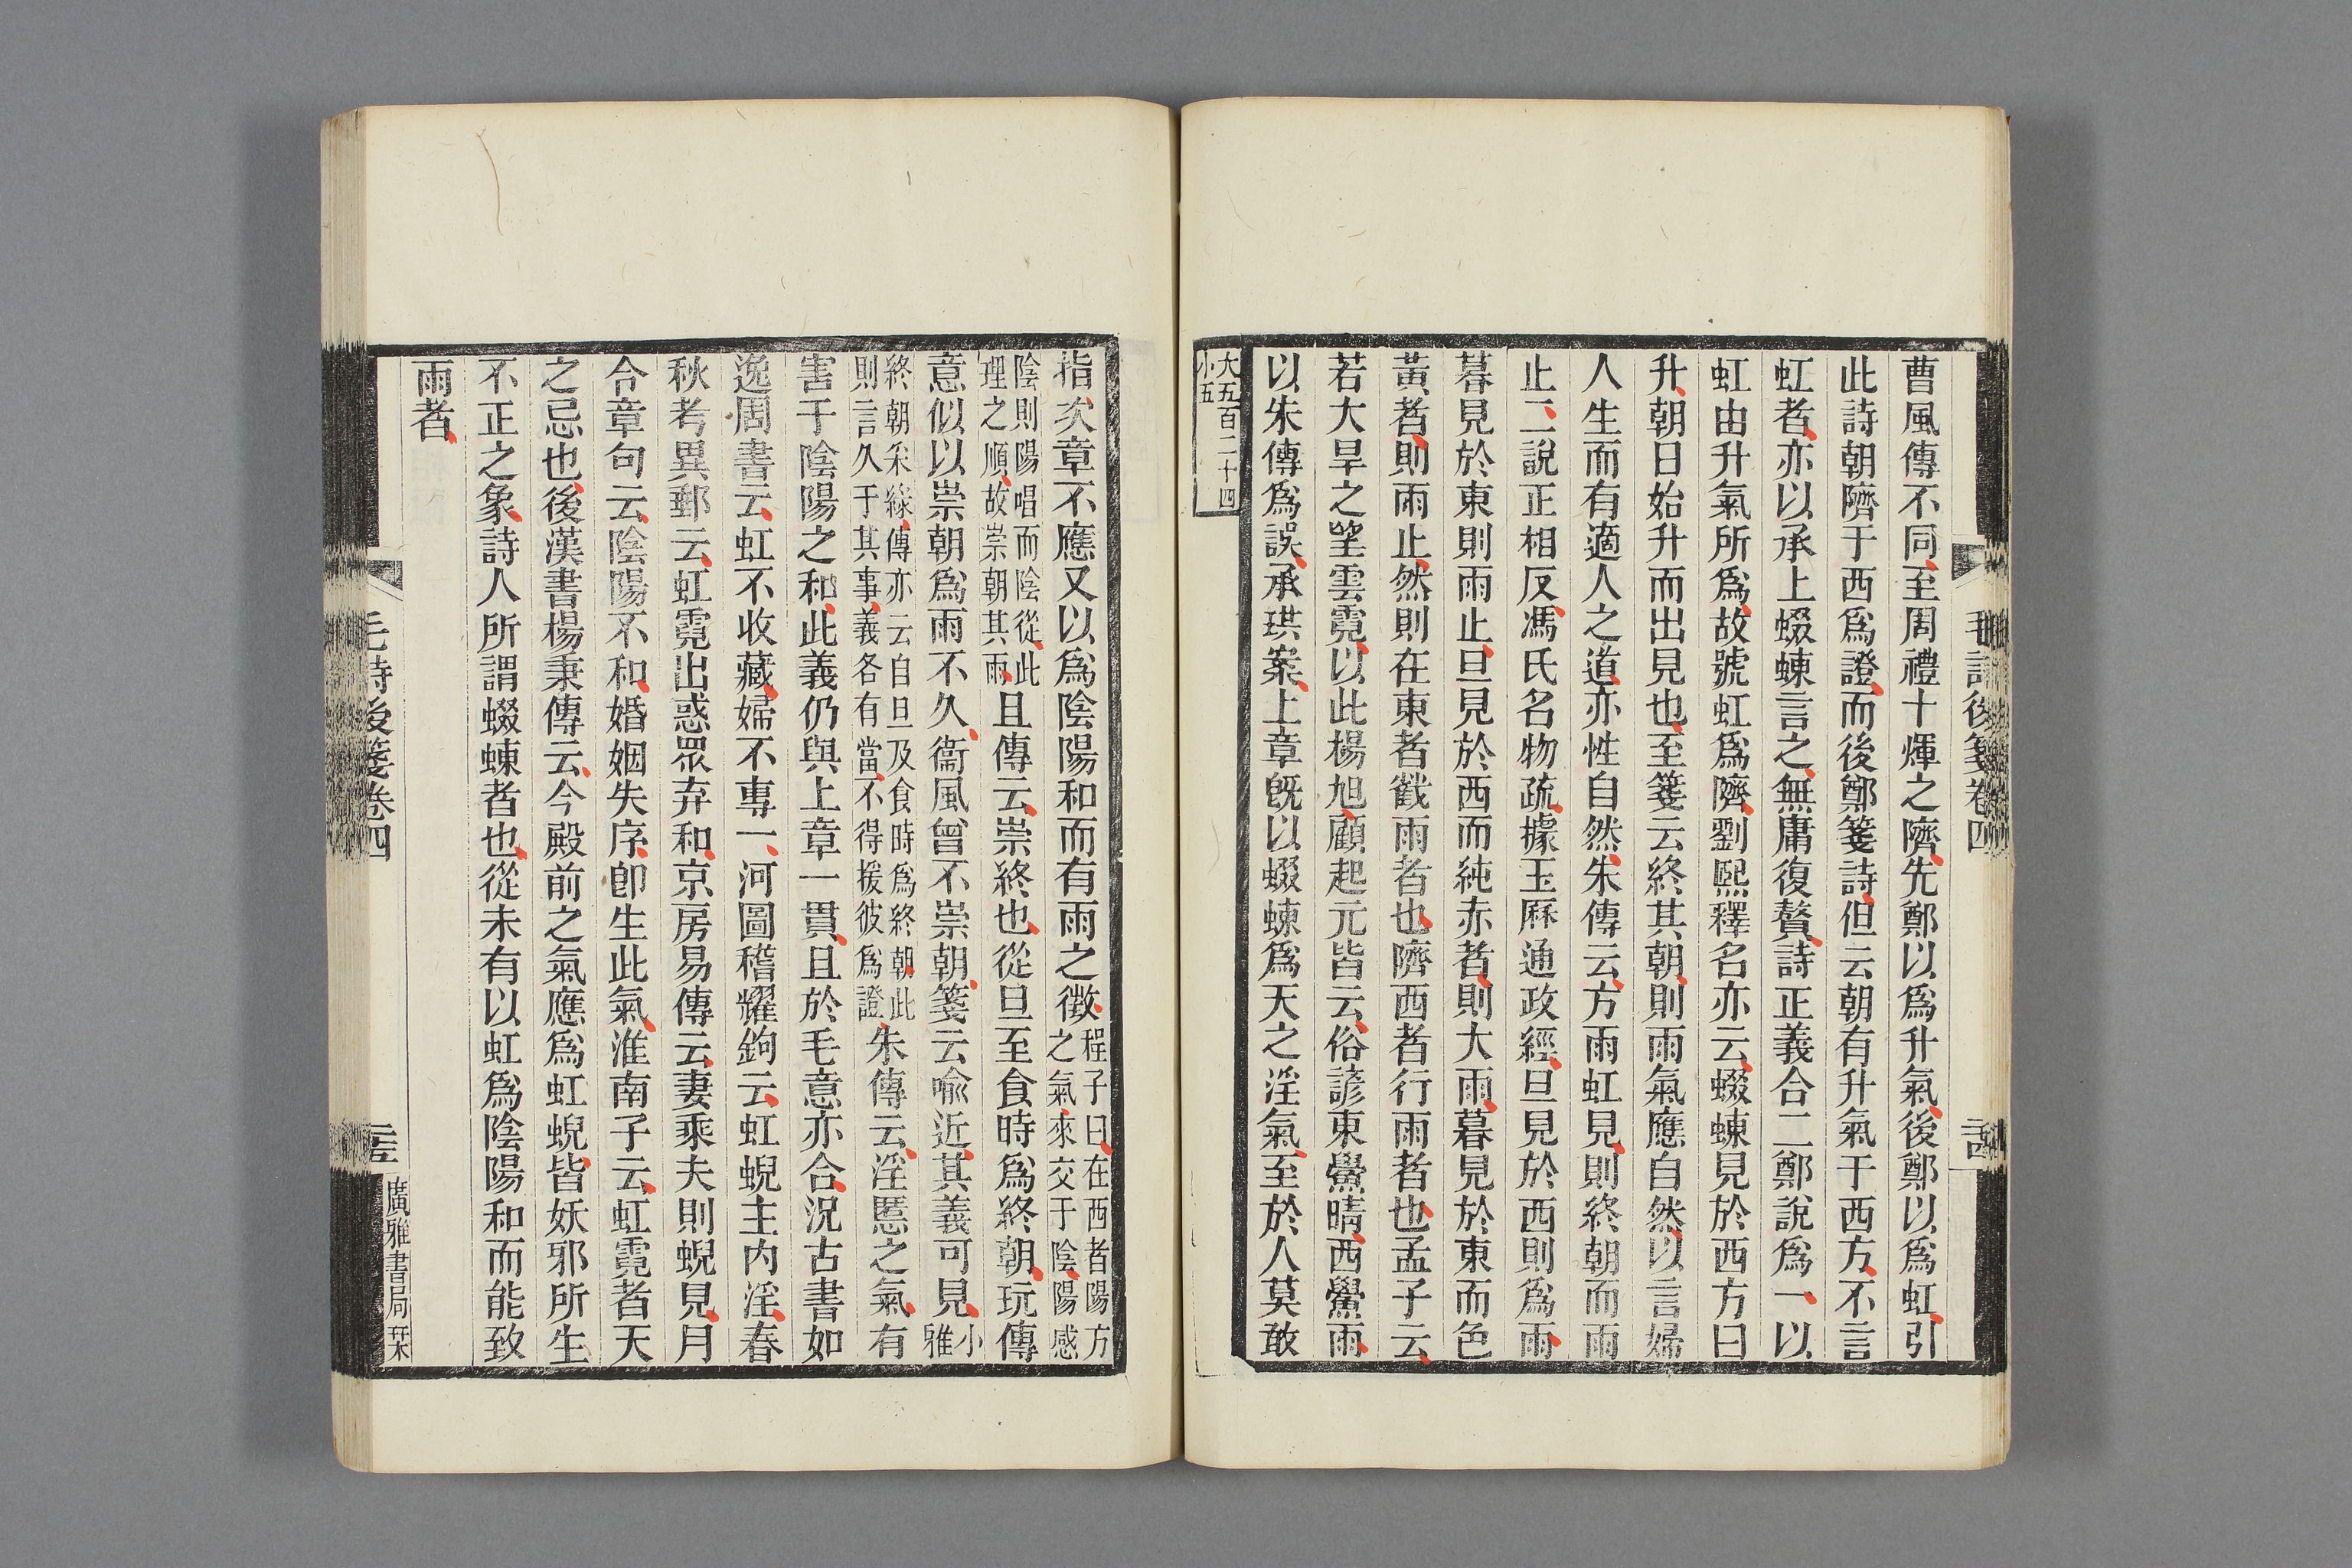 毛詩後箋卷四
曹風傳不同至周禮十煇之隮先鄭以爲升氣後鄭以爲虹引
此詩朝隮于西爲證而後鄭箋詩但云朝有升氣于西方不言
虹者亦以承上蝃蝀言之無庸復贅詩正義合二鄭說爲一以
虹由升氣所爲故號虹爲隮劉熙釋名亦云蝃蝀見於西方曰
升朝日始升而出見也至箋云終其朝則雨氣應自然以言婦
人生而有適人之道亦性自然朱傳云方雨虹見則終朝而雨
止二說正相反馮氏名物疏據玉厤通政經旦見於西則爲雨
暮見於東則雨止旦見於西而純赤者則大雨暮見於東而色
黃者則雨止然則在東者截雨者也隮西者行雨者也孟子云
若大旱之望雲霓以此楊旭顧起元皆云俗諺東鱟晴西鱟雨
以朱傳爲誤承珙案上章旣以蝃蝀爲天之淫氣至於人莫敢
大五百二十四
小五
指次章不應又以爲陰陽和而有雨之徵程子曰在西者陽方
之氣來交于陰陽感
陰則陽唱而陰從此
理之順故崇朝其雨且傳云崇終也從旦至食時爲終朝玩傳
意似以崇朝爲雨不久衞風曾不崇朝箋云喻近其義可見小
雅
終朝采綠傳亦云自旦及食時爲終朝此
則言久于其事義各有當不得援彼爲證朱傳云淫慝之氣有
害于陰陽之和此義仍與上章一貫且於毛意亦合況古書如
逸周書云虹不收藏婦不專一河圖稽耀鉤云虹蜺主內淫春
秋考異郵云虹霓出惑眾弃和京房易傳云妻乘夫則蜺見月
令章句云陰陽不和婚姻失序卽生此氣淮南子云虹霓者天
之忌也後漢書楊秉傳云今殿前之氣應爲虹蜺皆妖邪所生
不正之象詩人所謂蝃蝀者也從未有以虹爲陰陽和而能致
雨者
毛詩後箋卷四
廣雅書局栞